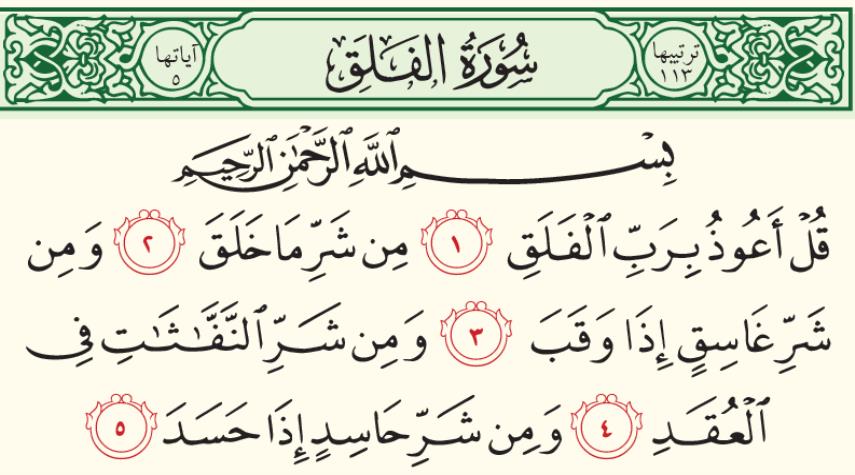 ترتيبها
١١٣
سُورَةُ الفَلَقِ
آياتها
٥
بِسْمِ ٱللَّهِ ٱلرَّحْمَٰنِ ٱلرَّحِيمِ
قُلْ أَعُوذُ بِرَبِّ ٱلْفَلَقِ ١ مِن شَرِّ مَا خَلَقَ ٢ وَمِن
شَرِّ غَاسِقٍ إِذَا وَقَبَ ٣ وَمِن شَرِّ ٱلنَّفَّٰثَٰتِ فِى
ٱلْعُقَدِ ٤ وَمِن شَرِّ حَاسِدٍ إِذَا حَسَدَ ٥